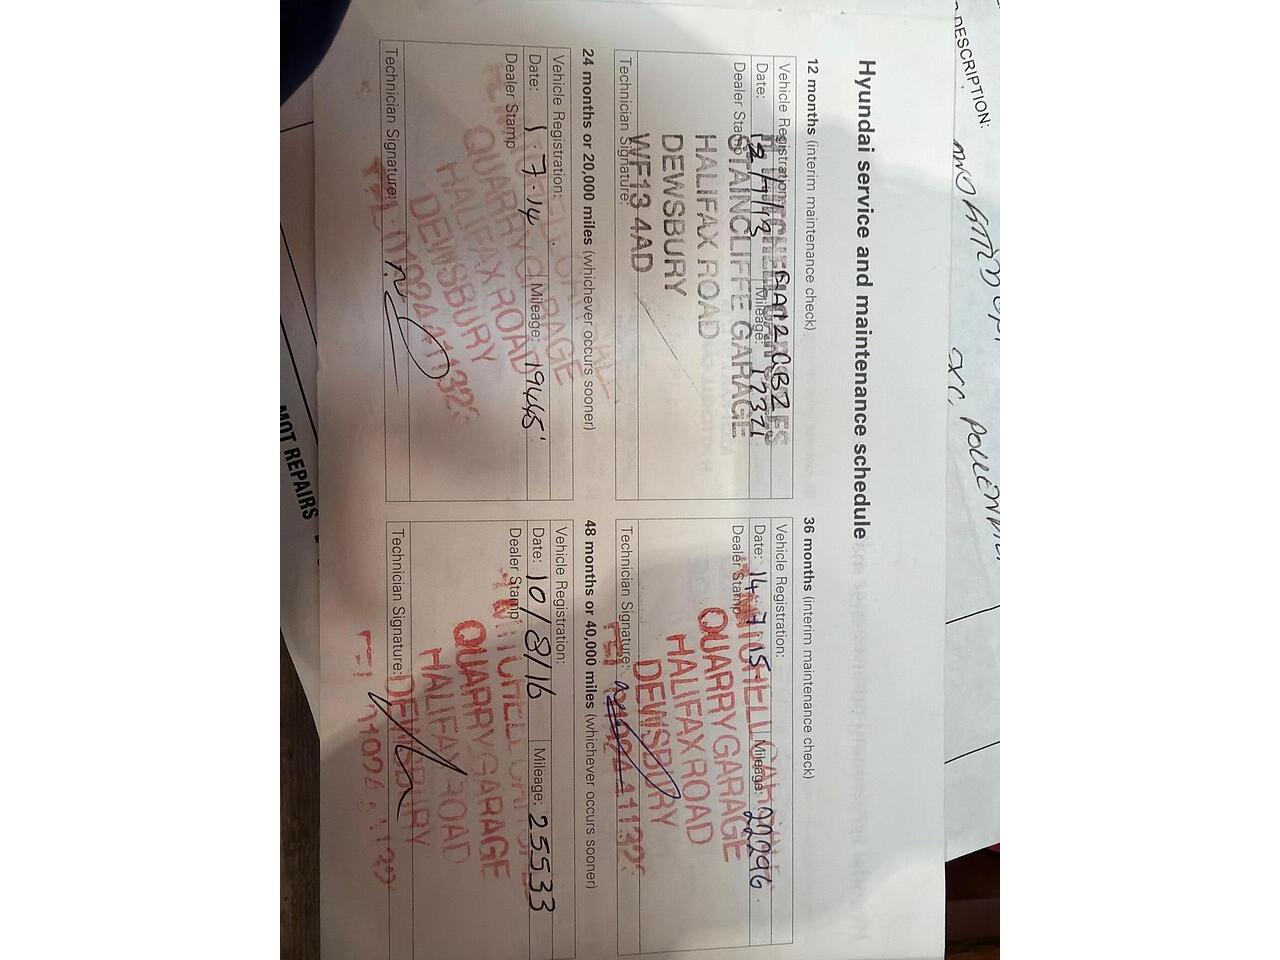 DESCRIPTION:
Hyundai service and maintenance schedule
12 months (interim maintenance check)
Vehicle Registration:
Date: Mileage: 17371
Dealer Stamp
STAINCLIFFE GARAGE
HALIFAX ROAD
DEWSBURY
WF13 4AD
Technician Signature:
24 months or 20,000 miles (whichever occurs sooner)
Vehicle Registration:
Date: 1.7.14 Mileage: 19445
Dealer Stamp
QUARRY GARAGE
HALIFAX ROAD
DEWSBURY
Technician Signature:
36 months (interim maintenance check)
Vehicle Registration:
Date: 14 7 15 Mileage: 22296
Dealer Stamp
MITCHELL
QUARRY GARAGE
HALIFAX ROAD
DEWSBURY
Technician Signature:
48 months or 40,000 miles (whichever occurs sooner)
Vehicle Registration:
Date: 10/8/16 Mileage: 25533
Dealer Stamp
MITCHELL
QUARRY GARAGE
HALIFAX ROAD
DEWSBURY
Technician Signature:
MOT REPAIRS